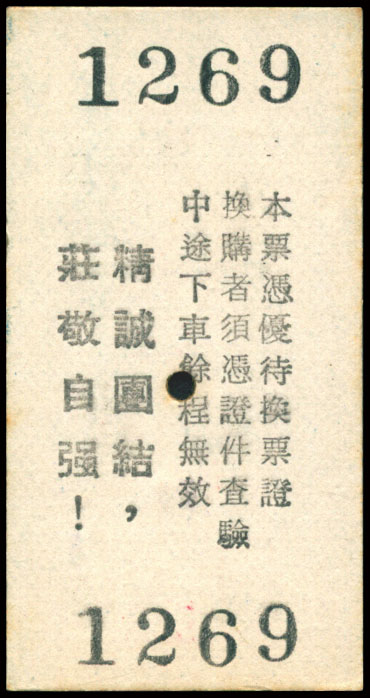 1269
本票憑優待換票證
換購者須憑證件查驗
中途下車餘程無效
精誠團結，
莊敬自强！
1269